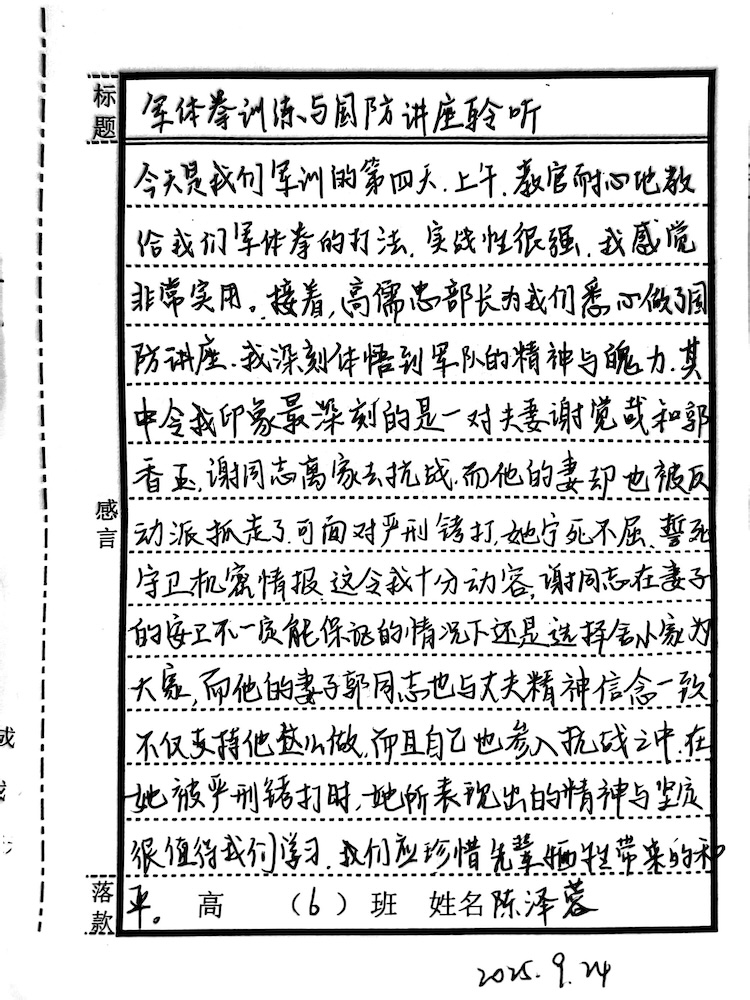 标题
军体拳训练与国防讲座聆听
今天是我们军训的第四天.上午.教官耐心地教
给我们军体拳的打法.实战性很强.我感觉
非常实用。接着,高儒忠部长为我们悉心做了国
防讲座.我深刻体悟到军队的精神与魄力.其
中令我印象最深刻的是一对夫妻谢觉哉和郭
香玉.谢同志离家去抗战.而他的妻却也被反
感言
动派抓走了.可面对严刑铐打.她宁死不屈、誓死
守卫机密情报.这令我十分动容,谢同志在妻子
的安卫不一定能保证的情况下还是选择舍小家为
大家,而他的妻子郭同志也与丈夫精神信念一致
不仅支持他这么做.而且自己也参入抗战之中.在
她被严刑铐打时.她所表现出的精神与坚定
很值得我们学习.我们应珍惜先辈牺牲带来的和
落款
平。高 (6)班 姓名陈泽蓉
2025.9.24